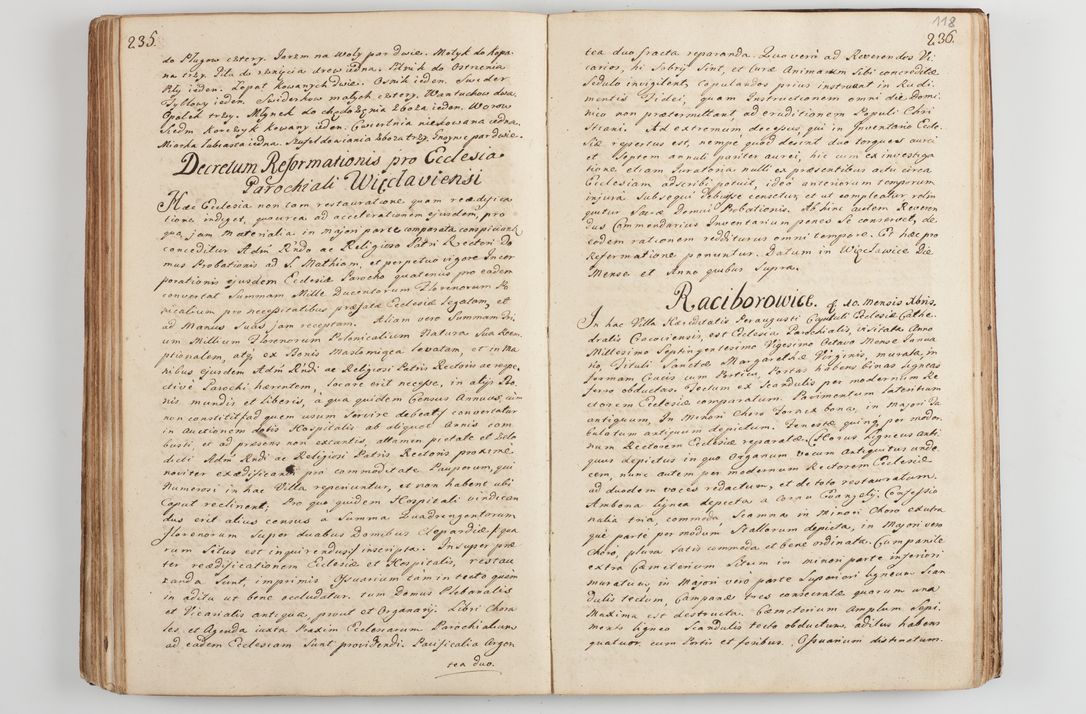 235.
do Pługow cztery. Jarzm na woły par dwie. Motyk do kopa-
nia trzy. Piła do rznięcia drew iedna. Pilnik do Ostrzenia
Piły ieden. Łopat kowanych dwie. Osnik ieden. Swider
Tyblowy ieden. Swiderkow małych cztery. Wantuchow dwa.
Opałek trzy. Młynek do zboża ieden. Worow
Siedm Korczyk kowany ieden. Cwiertnia niekowana iedna.
Miarka Łubiasta iedna. Szufel do wiania zboża trzy. par dwie.
Decretum Reformationis pro Ecclesia
Parochiali Więclaviensi
Hæc Ecclesia non tam restauratione quam reædifica-
tione indiget, quare ad accelerationem ejusdem, pro
qua jam materialia in majori parte comparata conspiciunt.
conceditur Adm Rndo ac Religioso Patri Rectori Do-
mus Probationis ad S. Mathiam, et perpetuo vigore Incor-
porationis ejusdem Ecclesiæ Parocho quatenus pro eadem
convertat Summam Mille Ducentorum Florenorum Po-
nicalium pro necessitatibus præfatæ Ecclesiæ Legatam, et
ad Manus Suas jam receptam. Aliam vero Summam Tri-
um Millium Florenorum Polonicalium Natura Sua Reem-
ptionalem, atq ex Bonis Masłomiąca levatam, et in Ma-
nibus ejusdem Adm Rndi ac Religiosi Patris Rectoris ac respe-
ctive Parochi hærentem, locare erit necesse, in alijs Bo-
nis, mundis et liberis, a qua quidem Census Annuus, cum
non constitit ad quem usum servire debeat, convertatur
in Auctionem dotis Hospitalis ab aliquot Annis com-
busti, et ad præsens non extantis, attamen pietate et Zelo
dicti Adm Rndi ac Religiosi Patris Rectoris proxime
noviter exædificandi pro commoditate Pauperum, qui
Numerosi in hac Villa reperiuntur, et non habent ubi
Caput reclinent; Pro quo quidem Hospitali vindican-
dus erit alius census a Summa Quadringentorum
Florenorum super duabus Domibus Clepardiæ (qua-
rum Situs est inquirendus) inscripta. Insuper præ-
ter reædificationem Ecclesiæ et Hospitalis, restau-
randa sunt, imprimis Ossuarium tam in tecto quam
in aditu ut bene occludatur. tum Domus Plebanalis
et Vicarialis antiquæ, prout et Organarij. Libri Chora-
les, et Agenda iuxta Praxim Ecclesiarum Parochialium
ad eadem Ecclesiam sunt providendi. Pacificalia Argen-
tea duo.
118
236.
tea duo fracta reparanda. Quo vero ad Reverendos Vi-
carios, hi Sobrij sint, et Curæ Animarum Sibi concreditæ
Sedulo invigilent, Copulandos prius instruant in Rudi-
mentis Fidei, quam Instructionem omni die Domi-
nico non prætermittant, ad eruditionem Populi Chri-
stiani. Ad extremum decessus, qui in Inventario Eccle-
siæ repertus est, nempe quod desint duo torques aurei
et Septem annuli pariter aurei, hic cum ex investiga-
tione etiam Juratoria nulli ex præsentibus actu circa
Ecclesiam adscribi potuit, ideo anteriorum temporum
injuria Subsequi debuisse censetur, et ut compleatur relin-
quitur Sacræ Domui Probationis. Ab hinc autem Reveren-
dus Commendarius Inventarium penes se conservet, de
eodem rationem redditurus omni tempore. Et hæc pro
Reformatione ponuntur. Datum in Więclawice Die
Mense et Anno quibus Supra.
Raciborowice. 10. Mensis Xbris.
In hac Villa Hæreditatis Peraugusti Capituli Ecclesiæ Cathe-
dralis Cracoviensis, est Ecclesia Parochialis, visitata Anno
Millesimo Septingentesimo Vigesimo Octavo Mense Janua-
rio, Tituli Sanctæ Margarethæ Virginis, murata, in
formam Crucis cum Porticu, Portas habens binas ligneas
ferro obductas. Tectum ex Scandulis per modernum Re-
ctorem Ecclesiæ comparatum. Pavimentum Lateritium
antiquum, In Minori Choro Fornix bona, in Majori Ta-
bulatum antiquum depictum. Fenestræ quinq per moder-
num Rectorem Ecclesiæ reparatæ. Chorus ligneus anti-
quus depictus in quo Organum vocum antiquitus unde-
cem, nunc autem per modernum Rectorem Ecclesiæ
ad duodem voces redactum, et de toto restauratum.
Ambona lignea depicta a Cornu Evangelij. Confessio-
nalia tria, commoda, Scamna in Minori Choro ex utra-
que parte per modum Stallorum depicta, in Majori vero
Choro, plura satis commoda et bene ordinata. Campanile
extra Cæmeterium Situm in minori parte inferiori
muratum, in Majori vero parte Superiori ligneum Scan-
dulis tectum, Campanæ tres consecratæ quarum una
Maxima est destructa. Cæmeterium Amplum Sepi-
mento ligneo Scandulis tecto obductum, aditus habens
quatuor cum Portis et foribus. Ossuarium distinctum